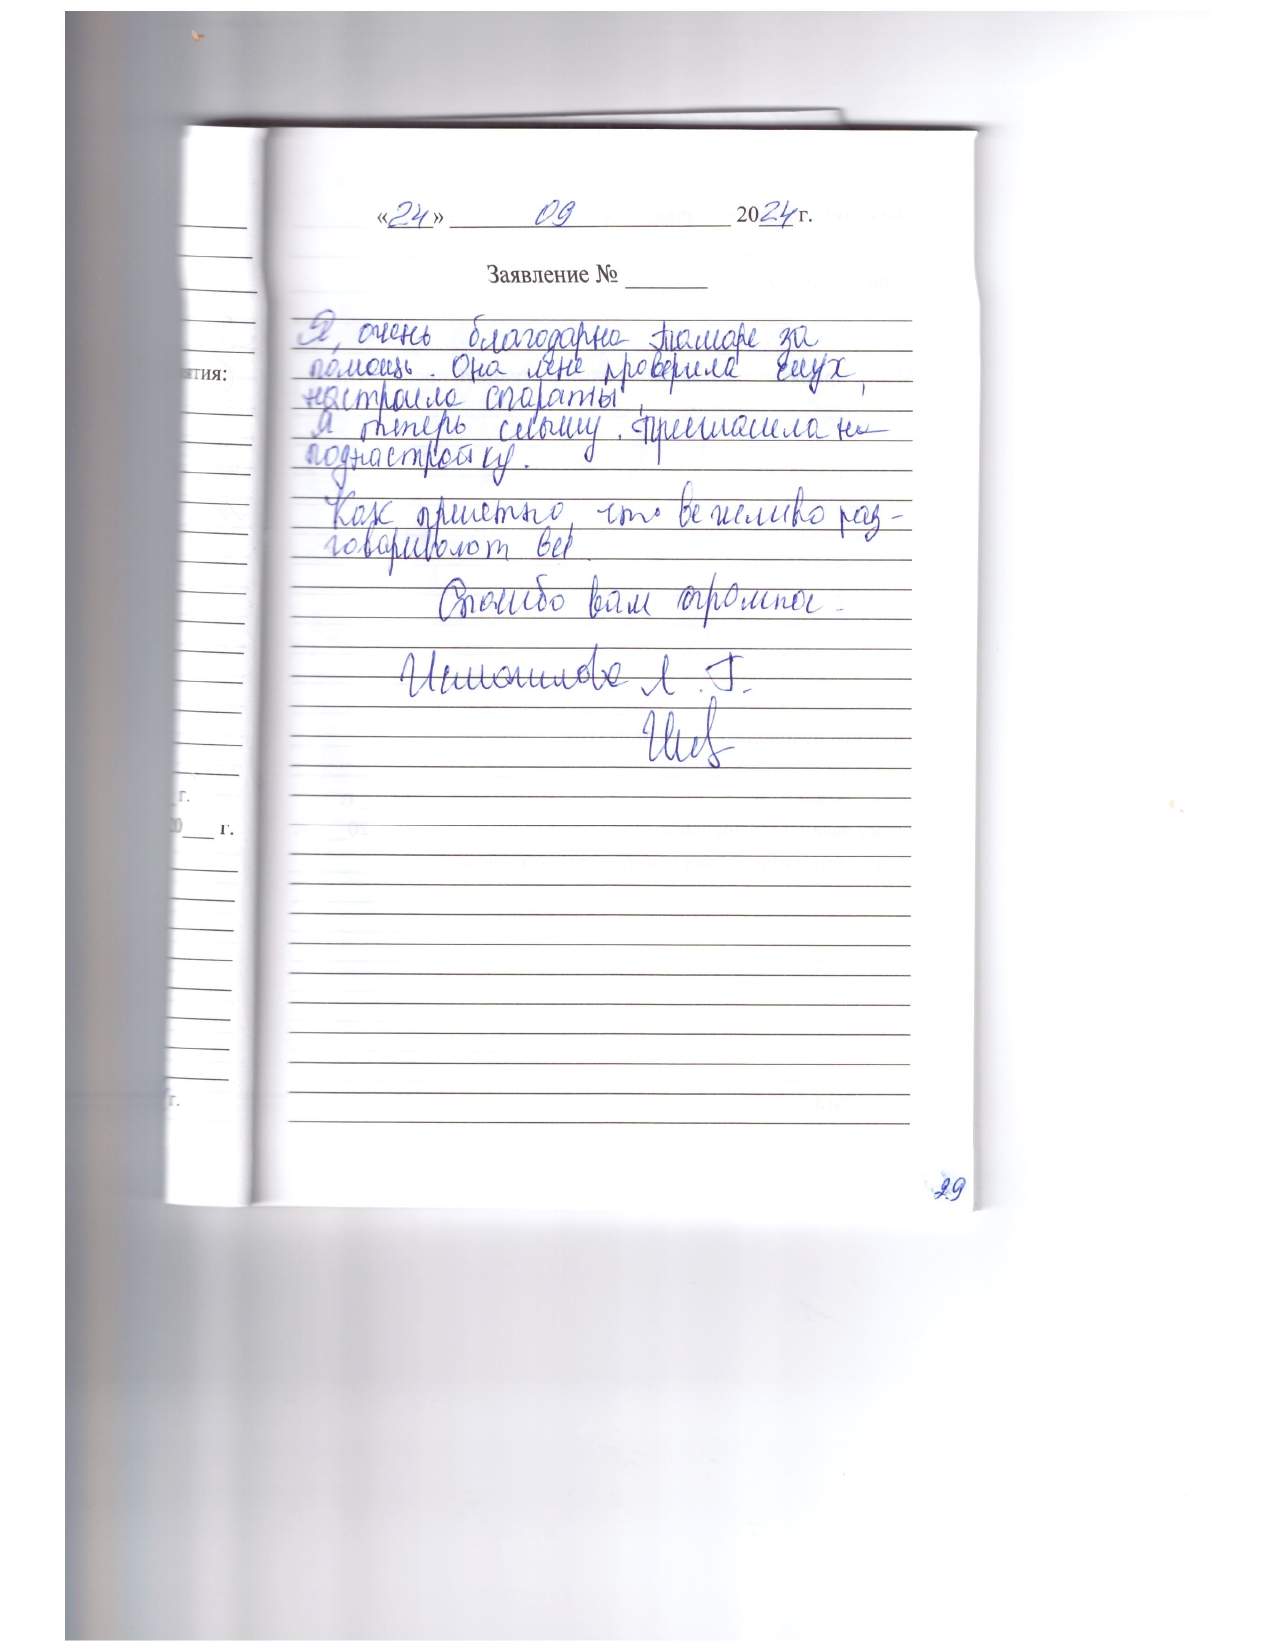 «24» 09 2024 г.
Заявление № ____
Я, очень благодарна Тамаре за
помощь. Она мне проверила слух,
настроила апараты,
я теперь слышу. Пригласила на
поднастройку.
Как приятно, что вежливо раз-
говаривают все.
Спасибо вам огромное.
Исмоилова Л. Г.
ятия:
г.
20___ г.
г.
29